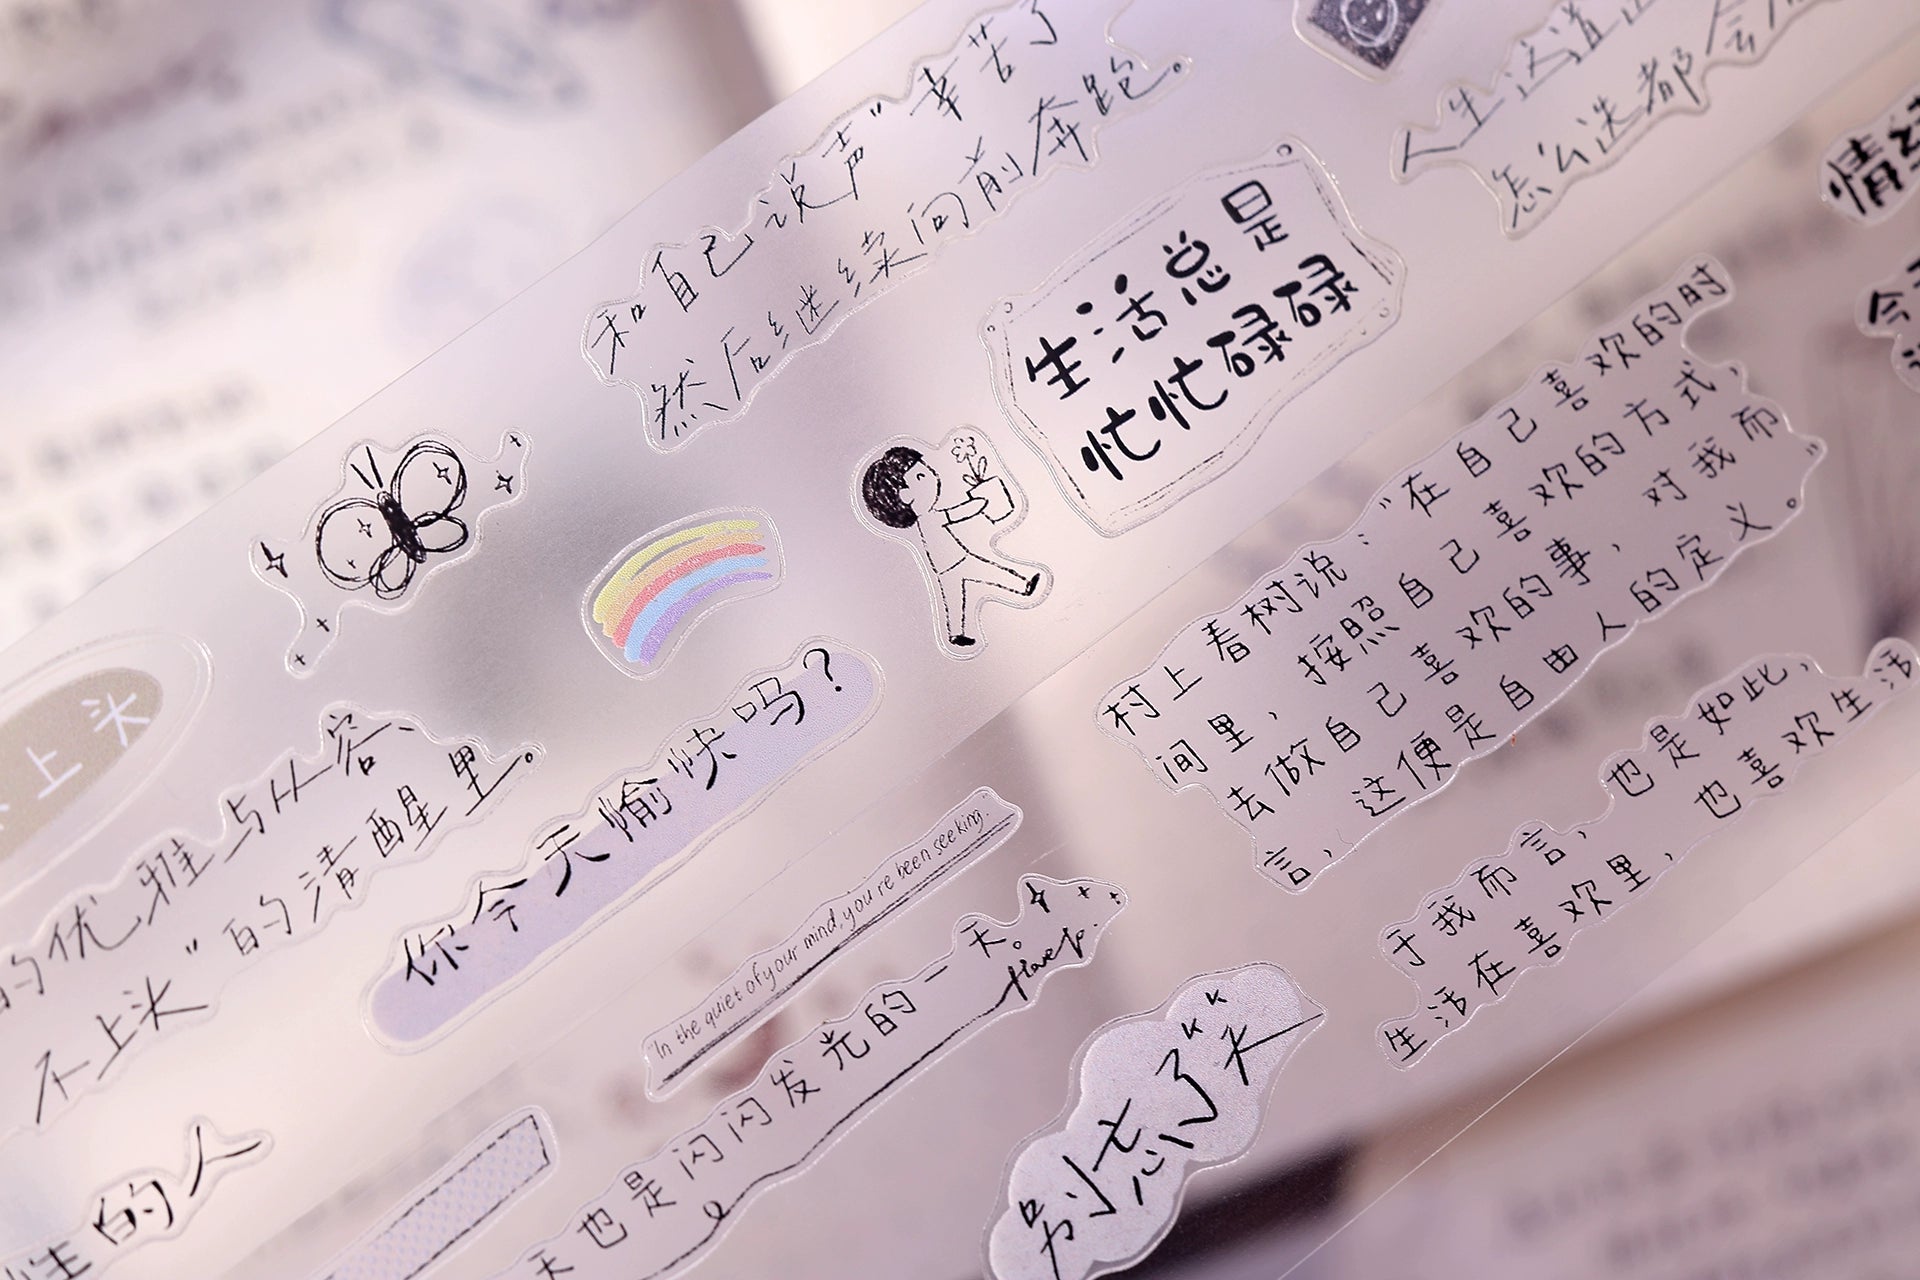 和自己说声“幸苦了
然后继续向前奔跑。
人生这道
怎么选都会
生活总是
忙忙碌碌
情
今
村上春树说:“在自己喜欢的时
间里,按照自己喜欢的方式,
去做自己喜欢的事,对我而
言,这便是自由人的定义。”
于我而言,也是如此,
生活在喜欢里,也喜欢生活
上头
的优雅与从容、
不上头”的清醒里。
你今天愉快吗?
"In the quiet of your mind, you're been seeking."
天也是闪闪发光的一天。
别忘了笑
性的人